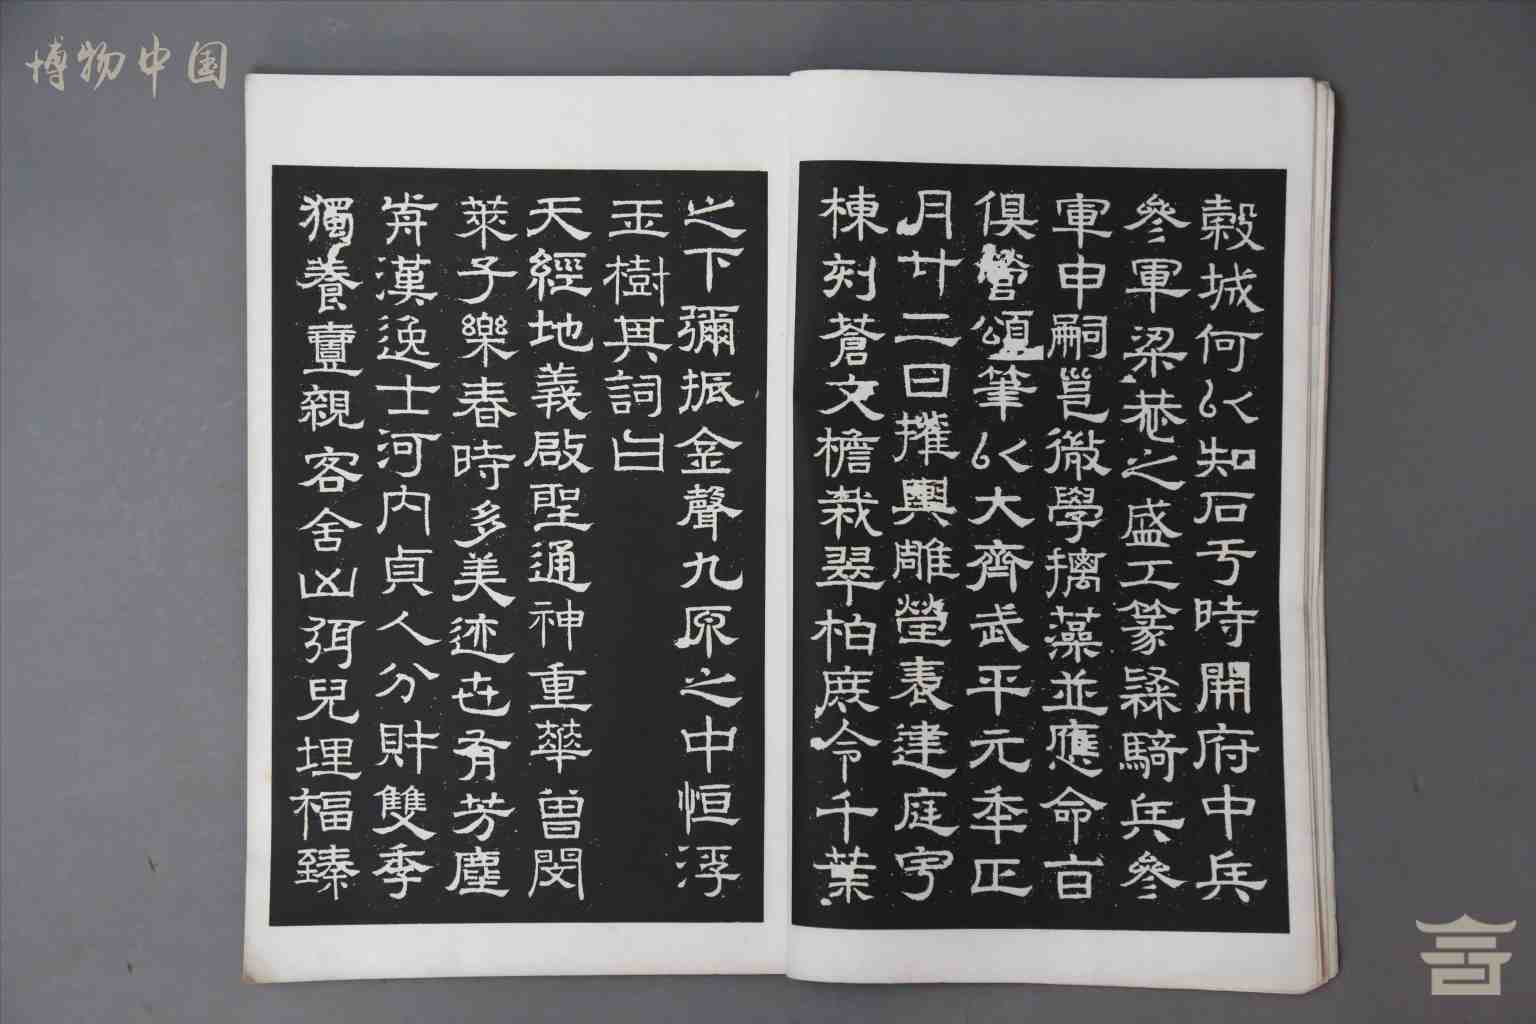 博物中国
穀城何以知石于時開府中兵
參軍梁恭之盛工篆隸騎兵參
軍申嗣邕徽學摛藻並應命百
俱營頌筆以大齊武平元年正
月廿二日摧輿雕瑩表建庭宇
棟刻蒼文檐栽翠柏庶令千葉
之下彌振金聲九原之中恒浮
玉樹其詞曰
天經地義啟聖通神重華曾閔
萊子樂春時多美迹世有芳塵
前漢逸士河內貞人分財雙季
獨養壹親客舍凶弭兒埋福臻